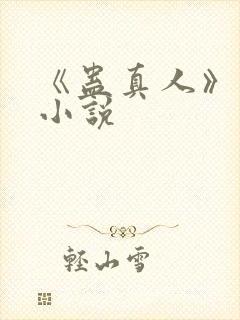 《蛊真人》
小說
輕山雪